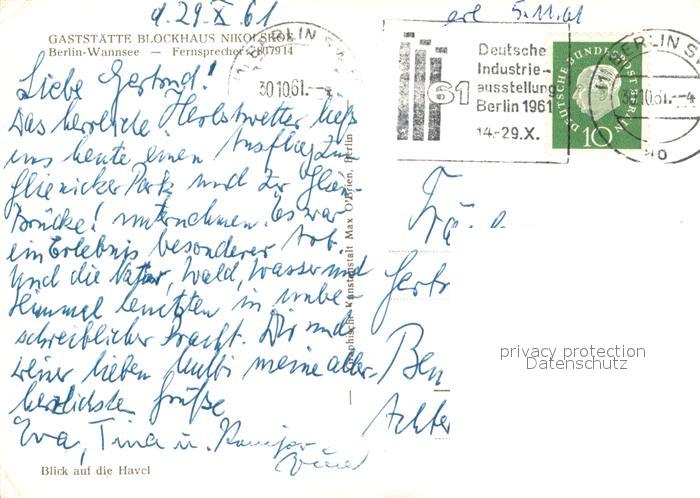 d. 29. X 61
erl 5.11.61
GASTSTÄTTE BLOCKHAUS NIKOLSKOE
Berlin-Wannsee — Fernsprecher 807914
BERLIN SW
30.10.61.--4
Deutsche
Industrie-
ausstellung
Berlin 1961
14.-29.X.
61
DEUTSCHE BUNDESPOST BERLIN
10
BERLIN SW
30.10.61.--4
Liebe Gertrud!
Das herrliche Herbstwetter ließ
uns heute einen Ausflug zum
Glienicker Park und zur Glien.
Brücke! unternehmen. Es war
ein Erlebnis besonderer Art.
Und die Natur, Wald, Wasser und
Himmel leuchten in unbe
schreiblicher Pracht. Dir und
Deiner lieben Mutti meine aller-
herzlichsten Grüße
Eva, Tina u.
Graphische Kunstanstalt Max O'Brien, Berlin
Frä
Gertr
Ben
Achter
privacy protection
Datenschutz
Blick auf die Havel